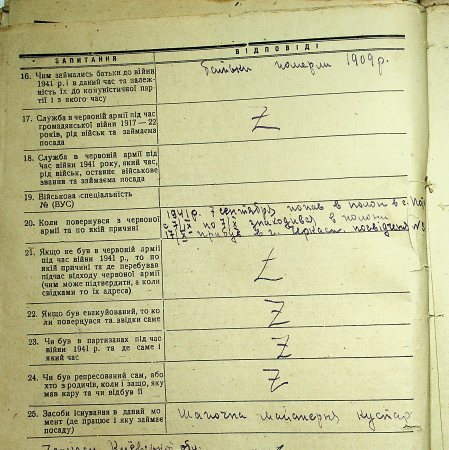 ЗАПИТАННЯ
ВІДПОВІДІ
16. Чим займались батьки до війни
1941 р. і в даний час та належ-
ність їх до комуністичної пар-
тії і з якого часу
батьки померли 1909 р.
17. Служба в червоній армії під час
громадянської війни 1917—22
років, рід військ та займаєма
посада
Z
18. Служба в червоній армії під
час війни 1941 року, який час,
рід військ, останнє військове
звання та займаєма посада
19. Військова спеціальність
№ (ВУС)
20. Коли повернувся з червоної
армії та по якій причині
1941 р. 7 сентября попав в полон в с.
з 7/IX по 7/X знаходився в полоні
прибув в г. Черкаси. посвідчен №
21. Якщо не був в червоній армії
під час війни 1941 р., то по
якій причині та де перебував
підчас відходу червоної армії
(чим може підтвердити, а коли
свідками то їх адреса)
Z
22. Якщо був евакуйований, то ко-
ли повернувся та звідки саме
Z
23. Чи був в партизанах під час
війни 1941 р. та де саме і
який час
Z
24. Чи був репресований сам, або
хто з родичів, коли і защо, яку
мав кару та чи відбув її
Z
25. Засоби існування в даний мо-
мент (де працює і яку займає
посаду)
Шапочна майстерня кустар